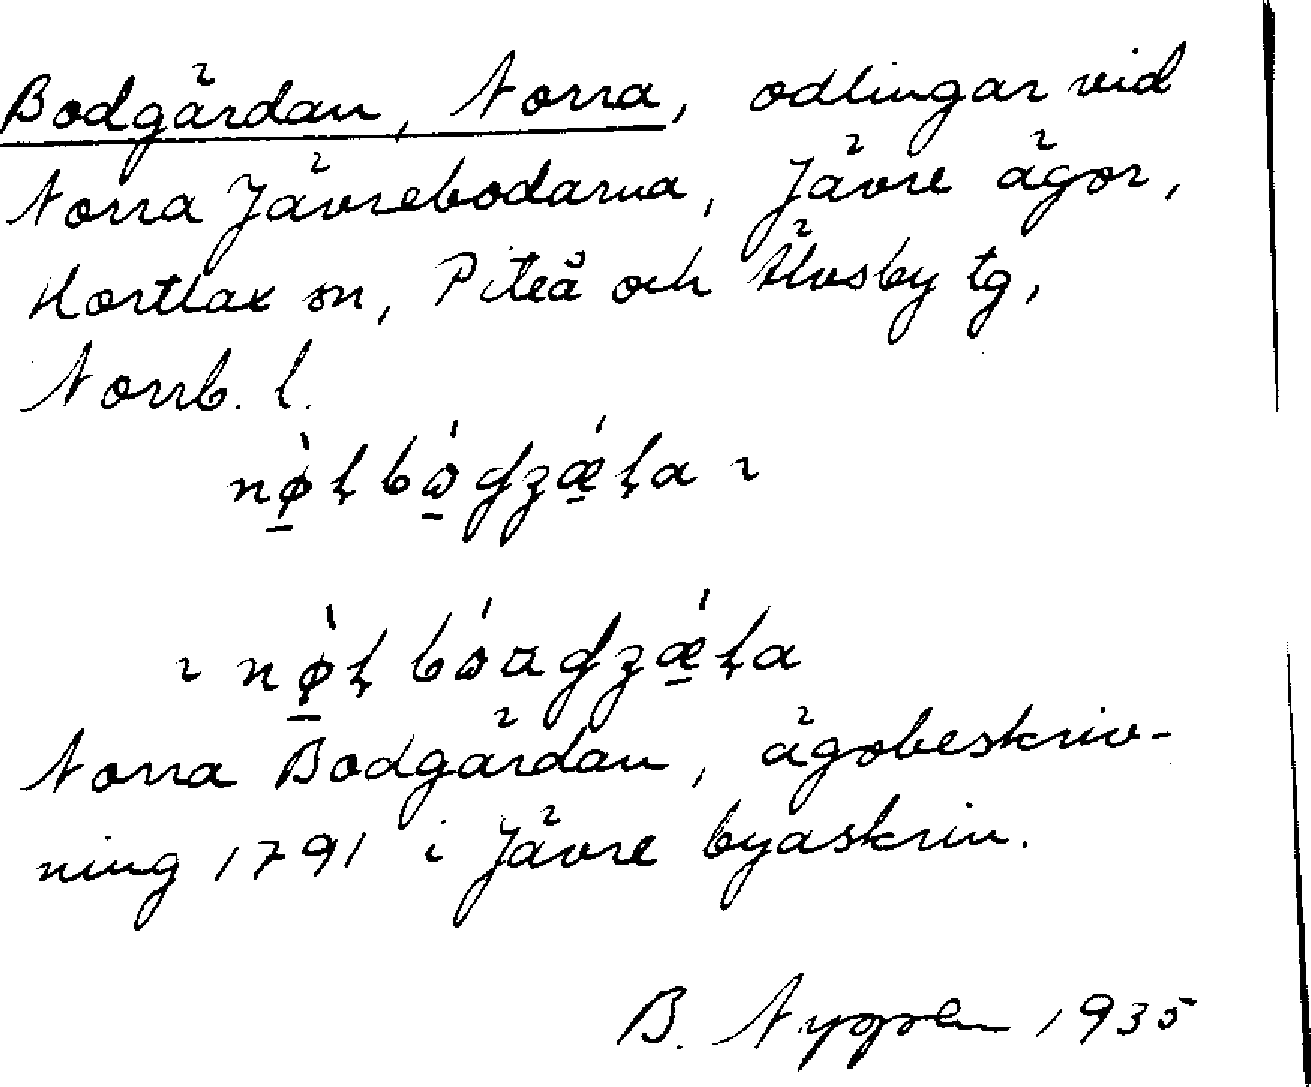 Bodgärdan, Norra, odlingar vid
Norra Jävrebodarna, Jävre ägor,
Hortlax sn, Piteå och Älvsby tg,
Norrb. l.
Norra Bodgärdan, ägobeskriv-
ning 1791 i Jävre byaskrin.
B. Nygren 1935